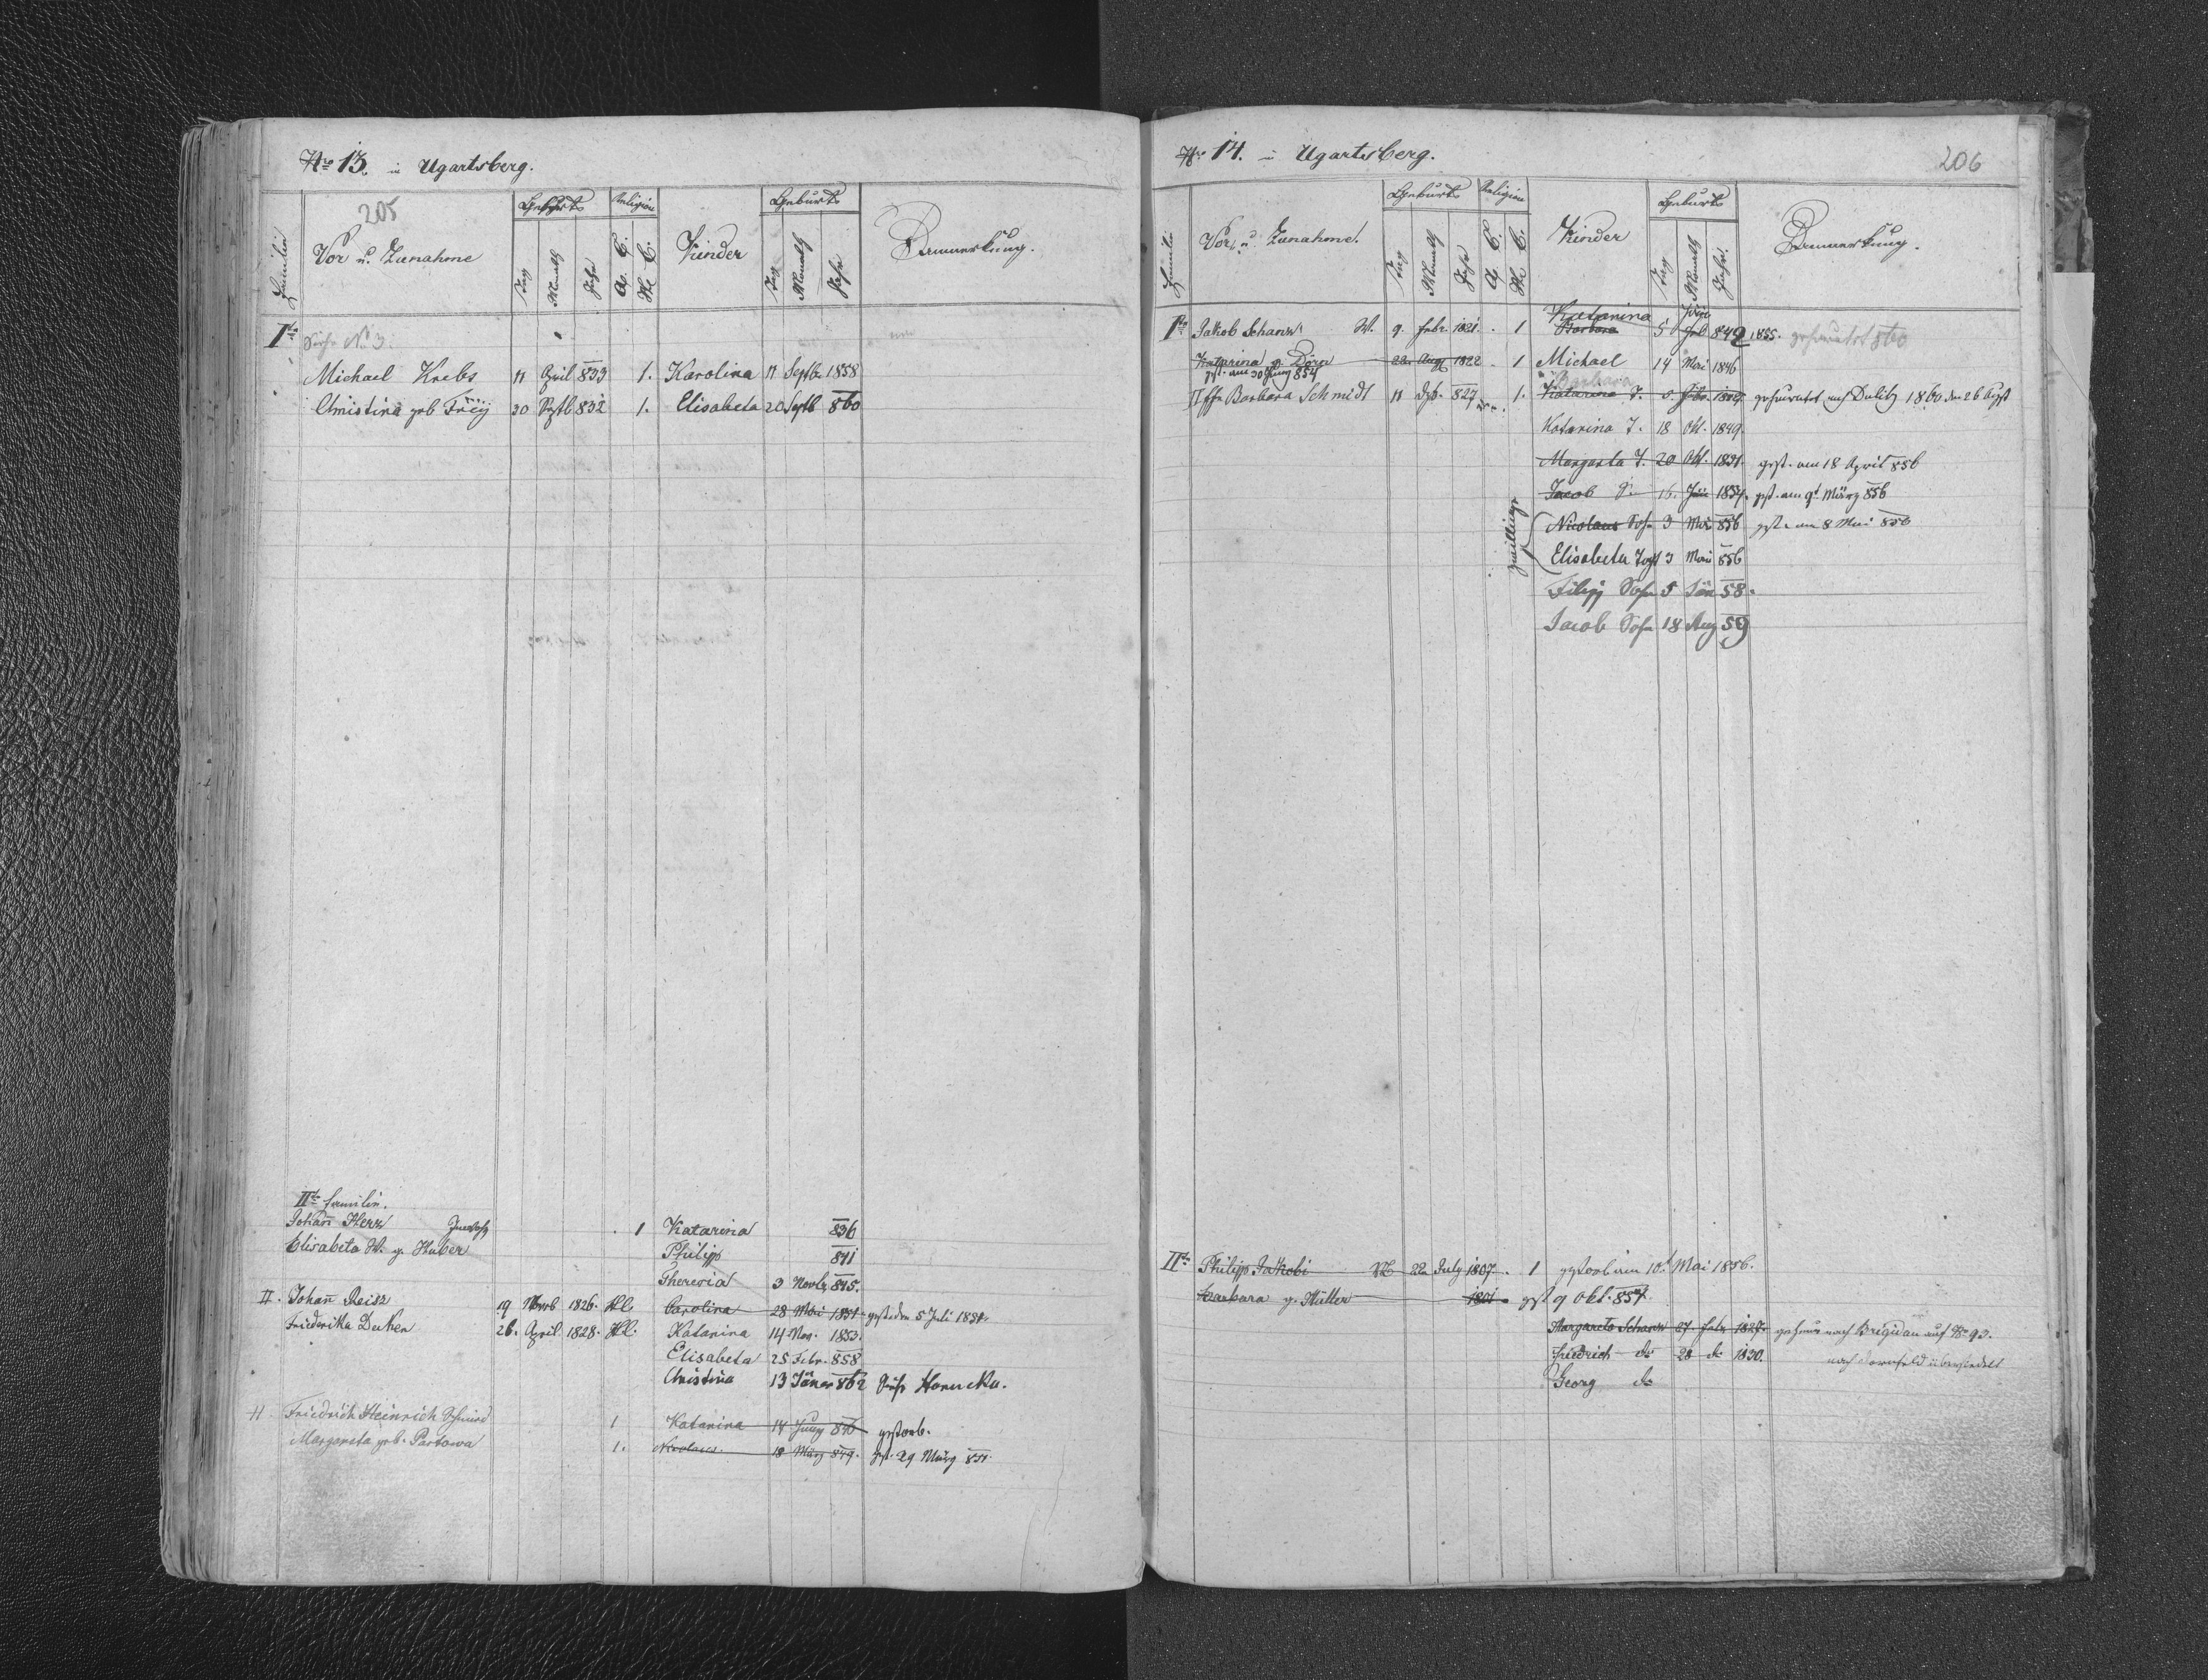 Nro 13. in Ugartsberg.
205
Familie Vor u. Zunahme Geburts Tag Monath Jahr Religion A. C. H. C. Kinder Geburts Tag Monath Jahr Bemerkung.
Ite Siehe No 3.
Michael Krebs 11 April 833 1. Karolina 11 Septb. 1858
Christina geb Freÿ 30 Septb 832 1. Elisabeta 20 Septb 860
IIte Familie.
Johañ Herz 1 Katarina 836
Elisabeta W. g. Huber Philipp 841
Theresia 3 Novb. 845.
II. Johañ Reisz 19 Novb 1826. Hl. Carolina 28 Mai 1851. gest. den 5 Juli 1851.
Friederika Decker 26. April 1828. Hl. Katarina 14 Nov. 1853.
Elisabeta 25 Febr. 858
Christina 13 Jäner 862 Siehe
II. Friedrich Heinrich Schmid 1 Katarina 14 Juny gestorb.
Margareta geb. 1. Nicolaus. 18 März 849. gest. 29 März 851.
Nro 14. in Ugartsberg.
206
Familie Vor, u. Zunahme. Geburts Tag Monath Jahr Religion A. C. H. C. Kinder Geburts Tag Monath Jahr. Bemerkung.
Ite Jakob Schanz W. 9. Febr. 1821. 1 Katarina Barbara 5 849 geheiratet 860
Katarina g. Dörr 22. Aug. 1822 1 Michael 14 Mai 1846
gest. am 30 Juny 854
Barbara
II Ehe Barbara Schmidt 11 827 1. Katarina T. geheiratet nach 1860 den 26
Katarina T. 18 Okt. 1849.
Margareta T. 20 Okt. 1851. gest. am 18 April 856
Jacob S. 16. 1854. gest. am 9t März 856
Zwillinge Nicolaus Sohn 3 Mai 856 gest. am 8 Mai 856
Elisabeta Toch 3 Mai 856
Filipp Sohn 5 Jän 58.
Jacob Sohn 18 Aug 59
IIte Philipp Jakobi 22 July 1807. 1 gestorb am 10t Mai 1856.
Barbara g. Müller 1801 gest 9 Okt. 857.
Margareta Schanz 27. Febr 1827. nach Brigidau auf No 93.
Friedrich do 28 do 1830. nach Dornfeld übersiedelt
Georg do